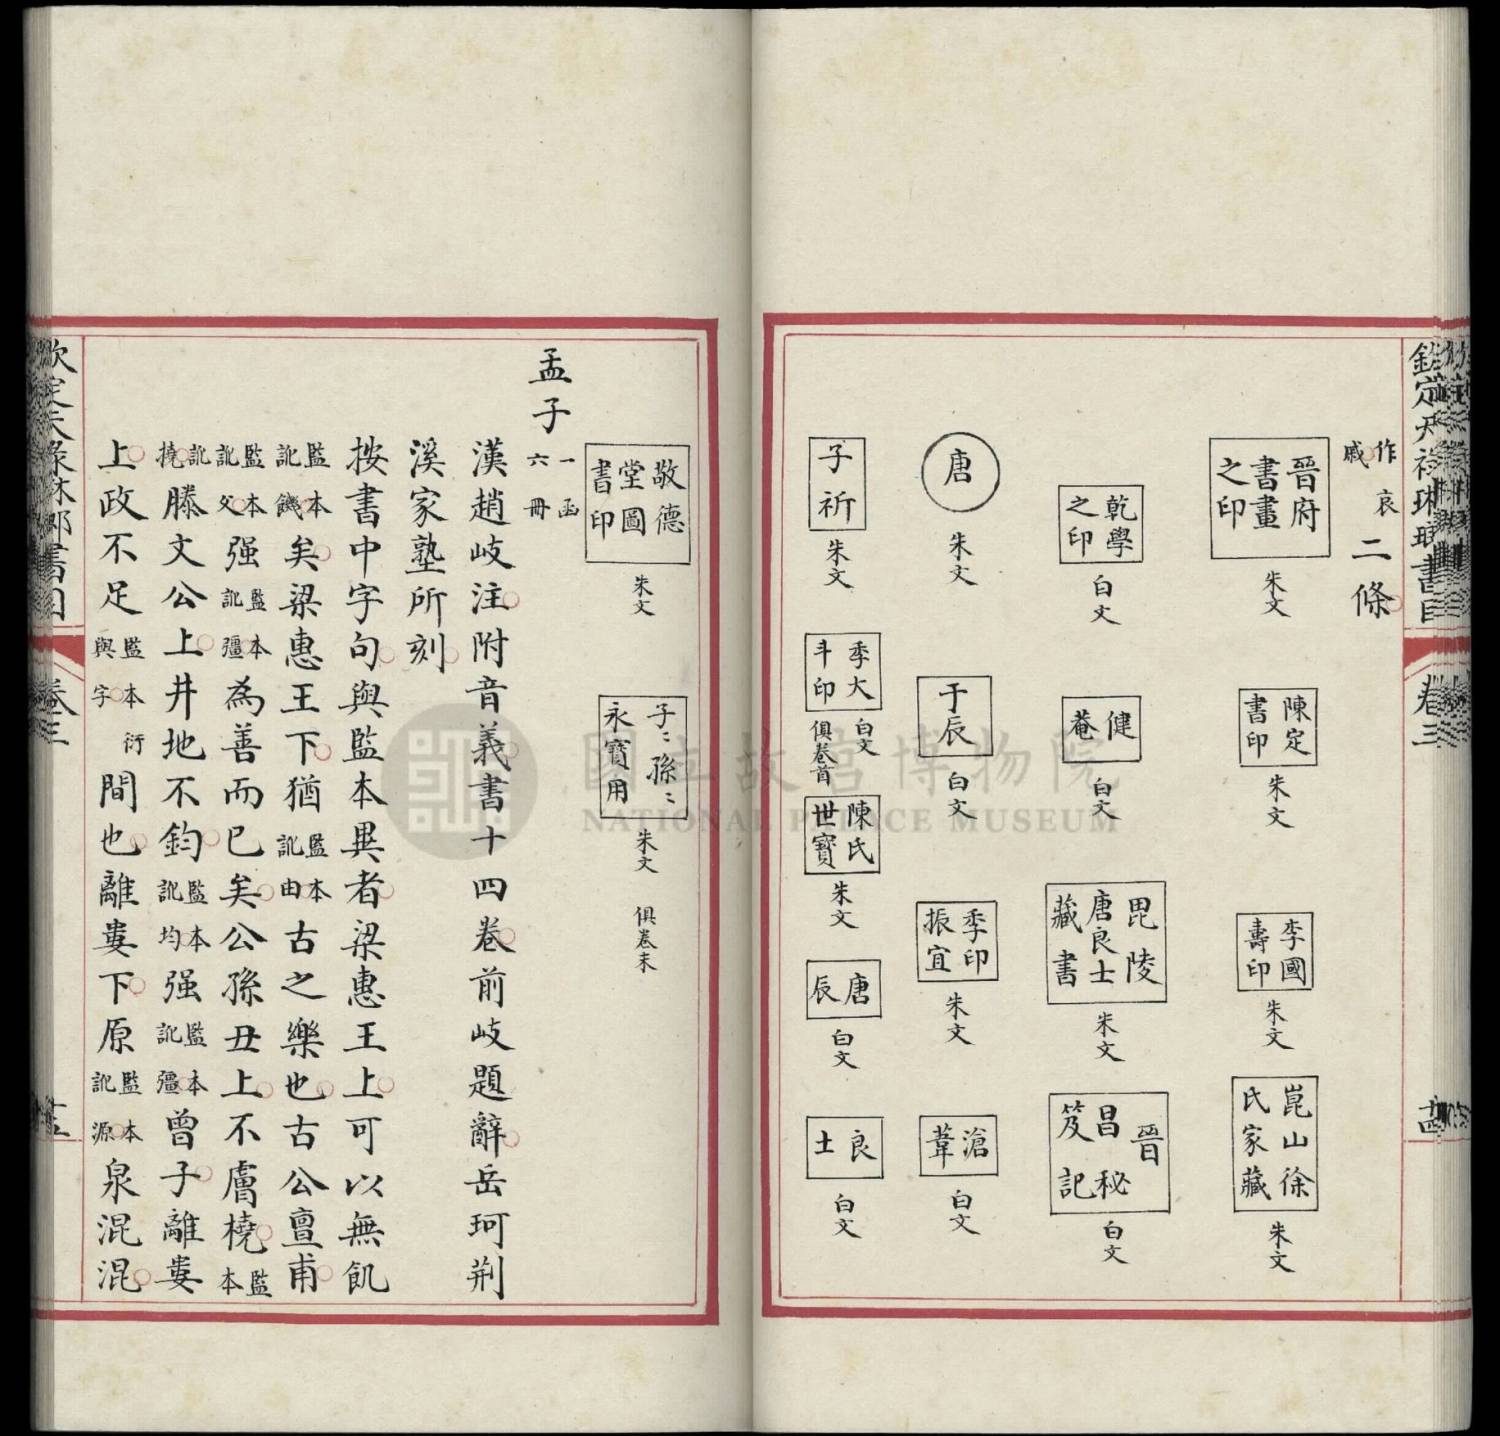 欽定天祿琳琅書目
卷三
作哀
戚
二條
晉府
書畫
之印
朱文
陳定
書印
朱文
李國
壽印
朱文
崑山徐
氏家藏
朱文
乾學
之印
白文
健
菴
白文
毘陵
唐良士
藏書
朱文
晉
昌秘
笈記
白文
唐
朱文
于
辰
白文
季印
振宜
朱文
滄
葦
白文
子
祈
朱文
季大
斗印
白文
俱卷首
陳氏
世寶
朱文
唐
辰
白文
良
士
白文
敬德
堂圖
書印
朱文
子〻孫〻
永寶用
朱文
俱卷末
孟子
一函
六冊
漢趙岐注附音義書十四卷前岐題辭岳珂荆
溪家塾所刻
按書中字句與監本異者梁惠王上可以無飢
監本訛饑矣梁惠王下猶監本訛由古之樂也古公亶甫
監本訛父强監本訛彊為善而已矣公孫丑上不膚橈監本
訛撓滕文公上井地不鈞監本訛均强監本訛彊曾子離婁
上政不足監本與字衍間也離婁下原監本訛源泉混混
欽定天祿琳琅書目
卷三
NATIONAL PALACE MUSEUM
國立故宮博物院